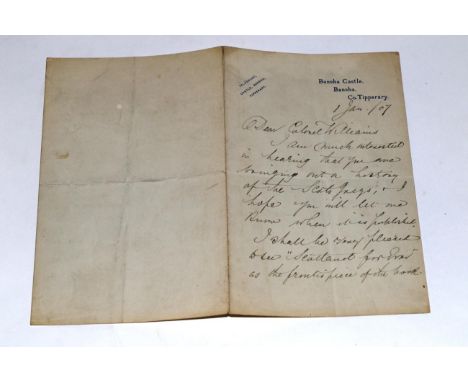 Bansha Castle,
Bansha,
Co. Tipperary.
1 Jan. /07
Dear Colonel Williams
I am much interested
in hearing that you are
bringing out a history
of the Scots Greys, & I
hope you will let me
know when it is published.
I shall be very pleased
to see "Scotland for Ever"
as the frontispiece of the book